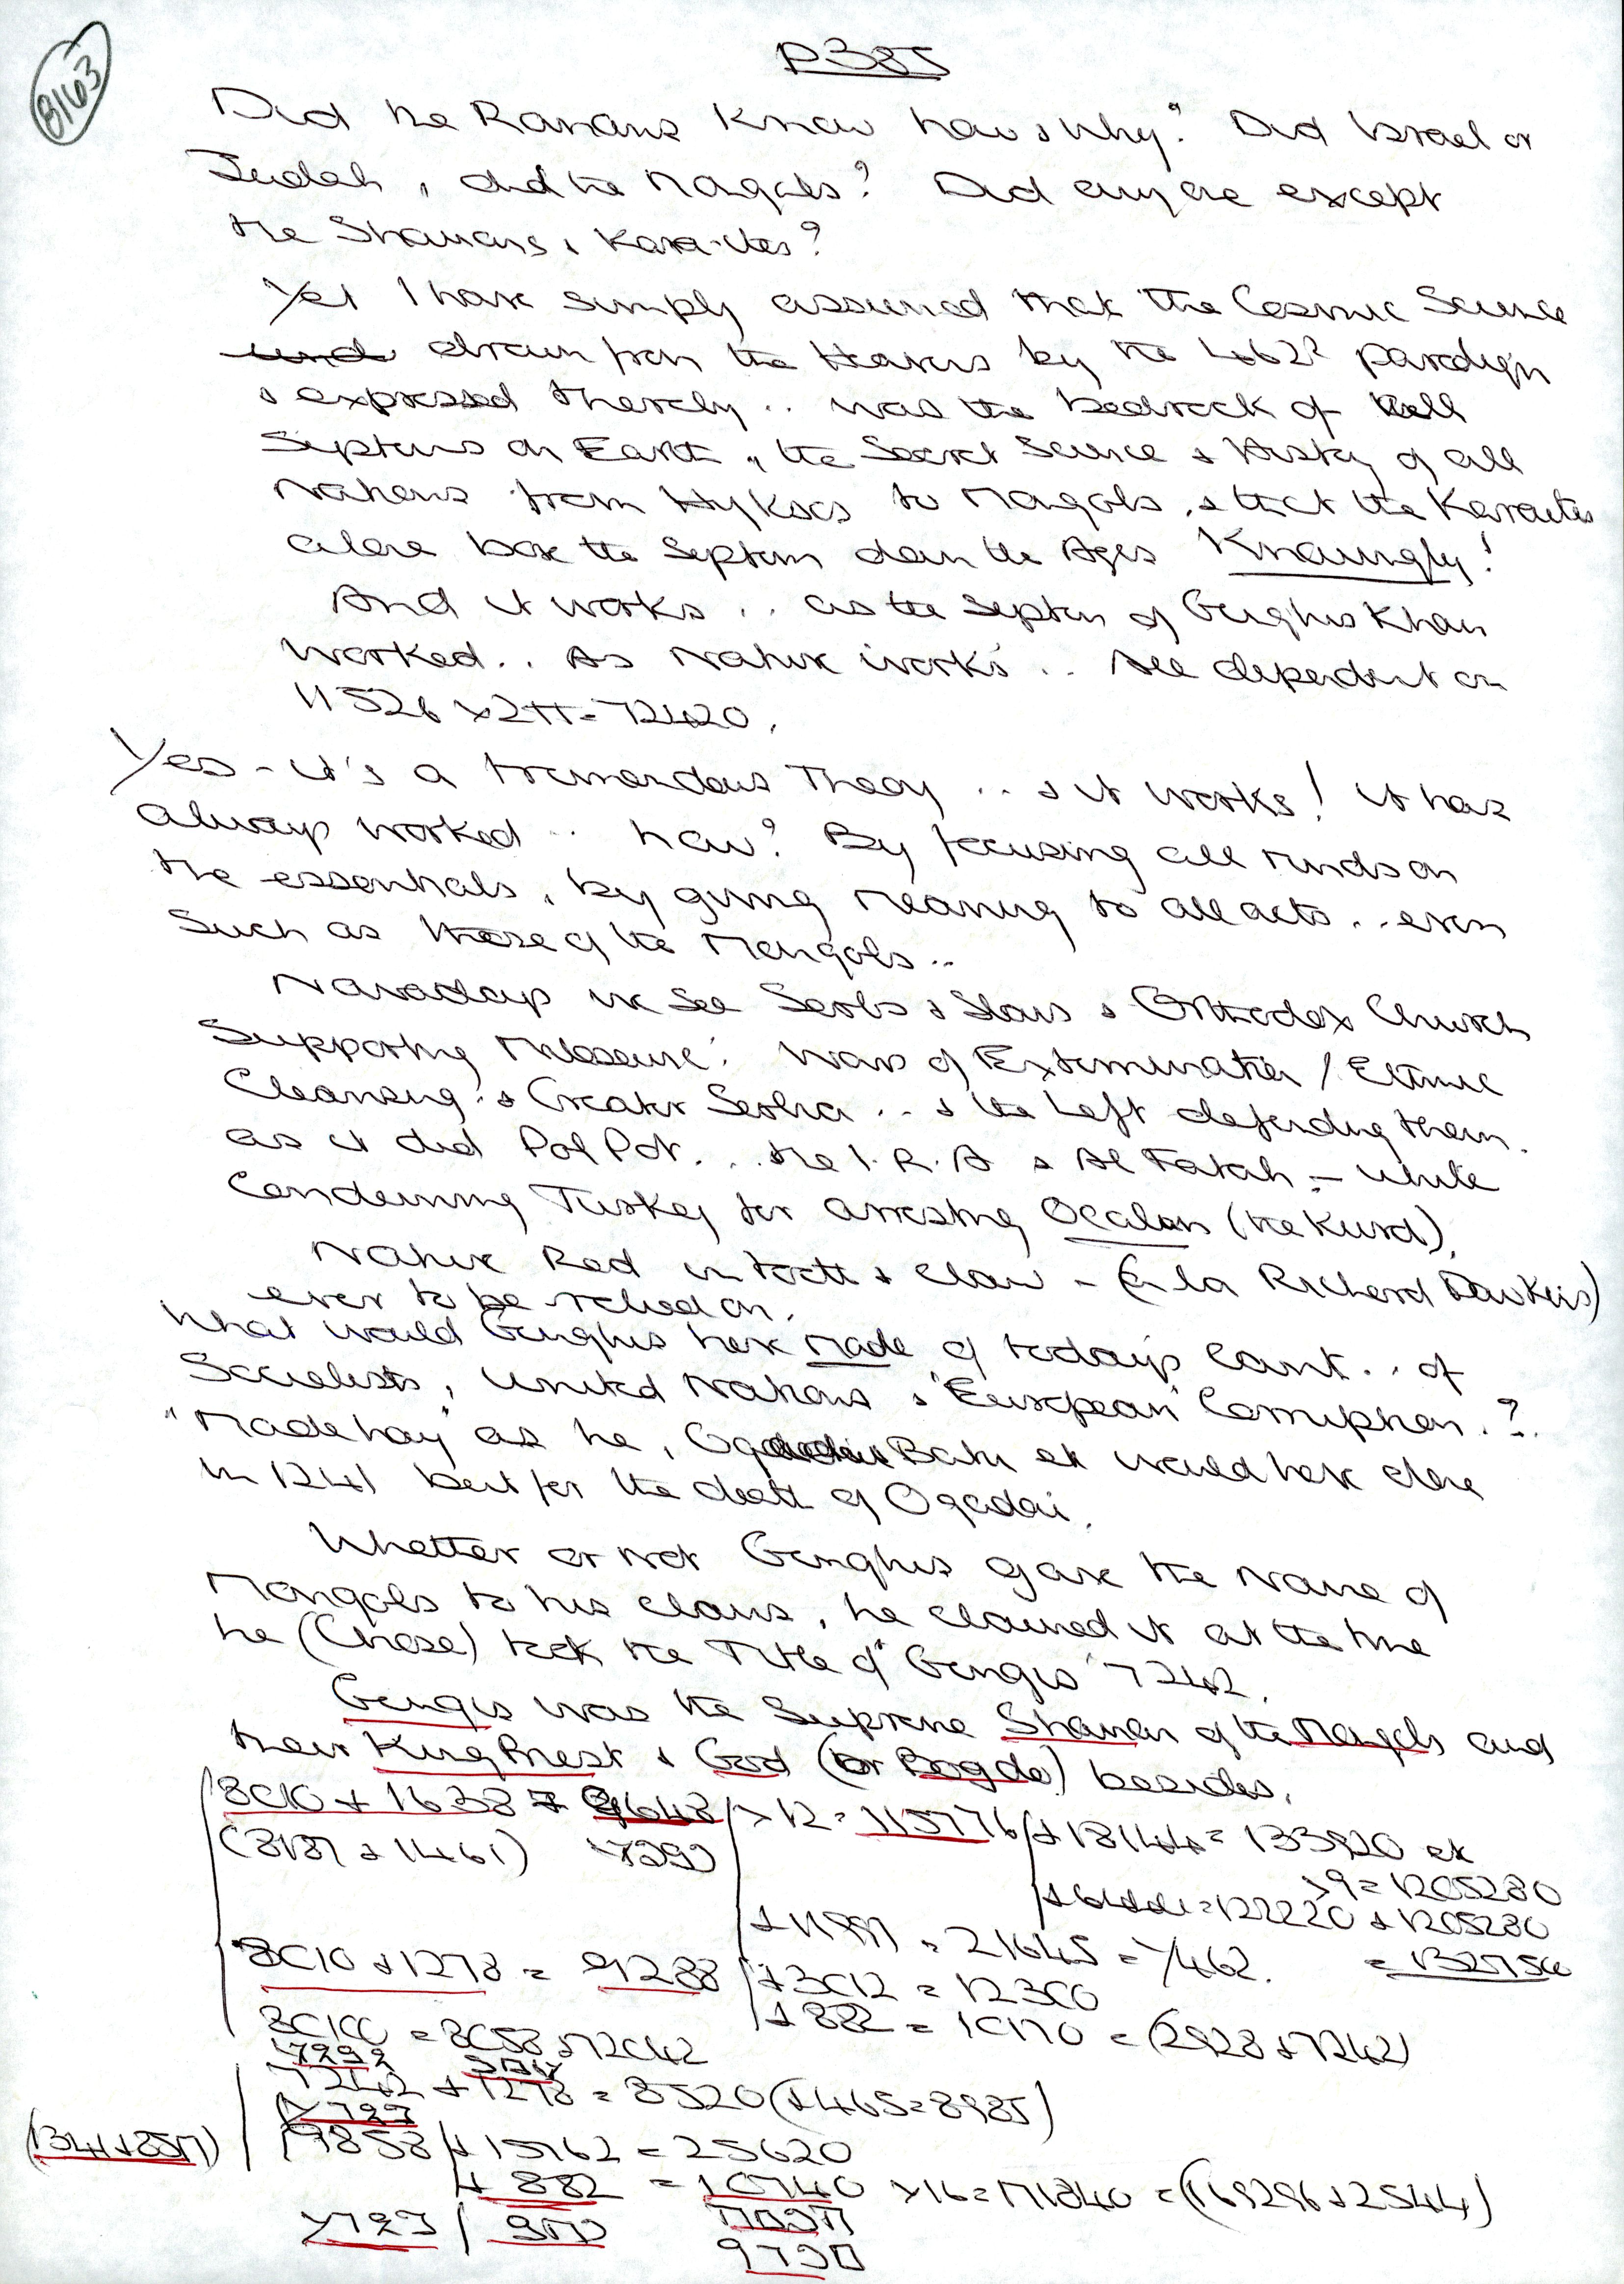 8163
P385
Did the Romans know how & why? Did Israel or
Judah, did the Mongols? Did anyone except
the Shamans & Kara-ites?
Yet I have simply assumed that the Cosmic Science
drawn from the Heavens by the paradigm
& expressed thereby .. was the bedrock of all
Systems on Earth, the Secret Science & History of all
Nations from Hyksos to Mongols, & that the Karaites
alone bore the System down the Ages Knowingly!
And it works .. as the System of Genghis Khan
worked .. As Nature works .. All dependent on
11526 x 2π = 72420.
Yes - it's a tremendous Theory .. & it works! It has
always worked .. how? By focusing all minds on
the essentials, by giving meaning to all acts .. even
such as those of the Mongols ..
Nowadays we see Serbs & Slavs & Orthodox Church
supporting Milosevic' Wars of Extermination / Ethnic
Cleansing & Greater Serbia ... & the Left defending them.
as it did Pol Pot. .. the I.R.A & Al Fatah - while
Condemning Turkey for arresting Ocalan (the Kurd).
Nature Red in tooth & claw - (a la Richard Dawkins)
ever to be relied on.
What would Genghis have made of today's Cant .. of
Socialists, United Nations & "European" Corruption .?
"Made hay" as he, Batu etc would have done
in 1241 but for the death of Ogedai.
Whether or not Genghis gave the name of
Mongols to his clans, he claimed it at the time
he (Chose) took the Title of "Gengis" 7242.
Gengis was the Supreme Shaman of the Mongols and
their King Priest & God (or Bogdo) besides.
8010 + 1638 = 9648 x 12 = 115776 + 18144 = 133920 etc
(8187 + 1461) x 9 = 1205280
= 122220 + 1205280
+ 11997 = 21645 = 7462. = 1327500
8010 + 1278 = 9288 + 3012 = 12300
+ 882 = 10170 = (2928 + 7242)
80100 = 8058 + 72042
7242 + 1278 = 8520 (+ 465 = 8985)
(1341 + 8517) 9858 + 15762 = 25620
+ 882 = 10740 x 16 = 171840 = (169296 + 2544)